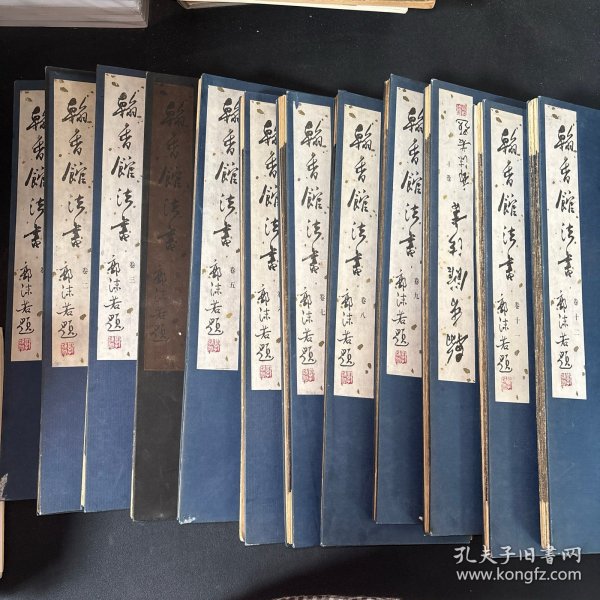 翰香館法書
郭沫若題
翰香館法書
卷二
郭沫若題
翰香館法書
卷三
郭沫若題
翰香館法書
郭沫若題
翰香館法書
卷五
郭沫若題
翰香館法書
郭沫若題
翰香館法書
卷七
郭沫若題
翰香館法書
卷八
郭沫若題
翰香館法書
卷九
郭沫若題
翰香館法書
郭沫若題
翰香館法書
卷十
郭沫若題
翰香館法書
卷十二
郭沫若題
孔夫子旧书网
www.kongfz.com